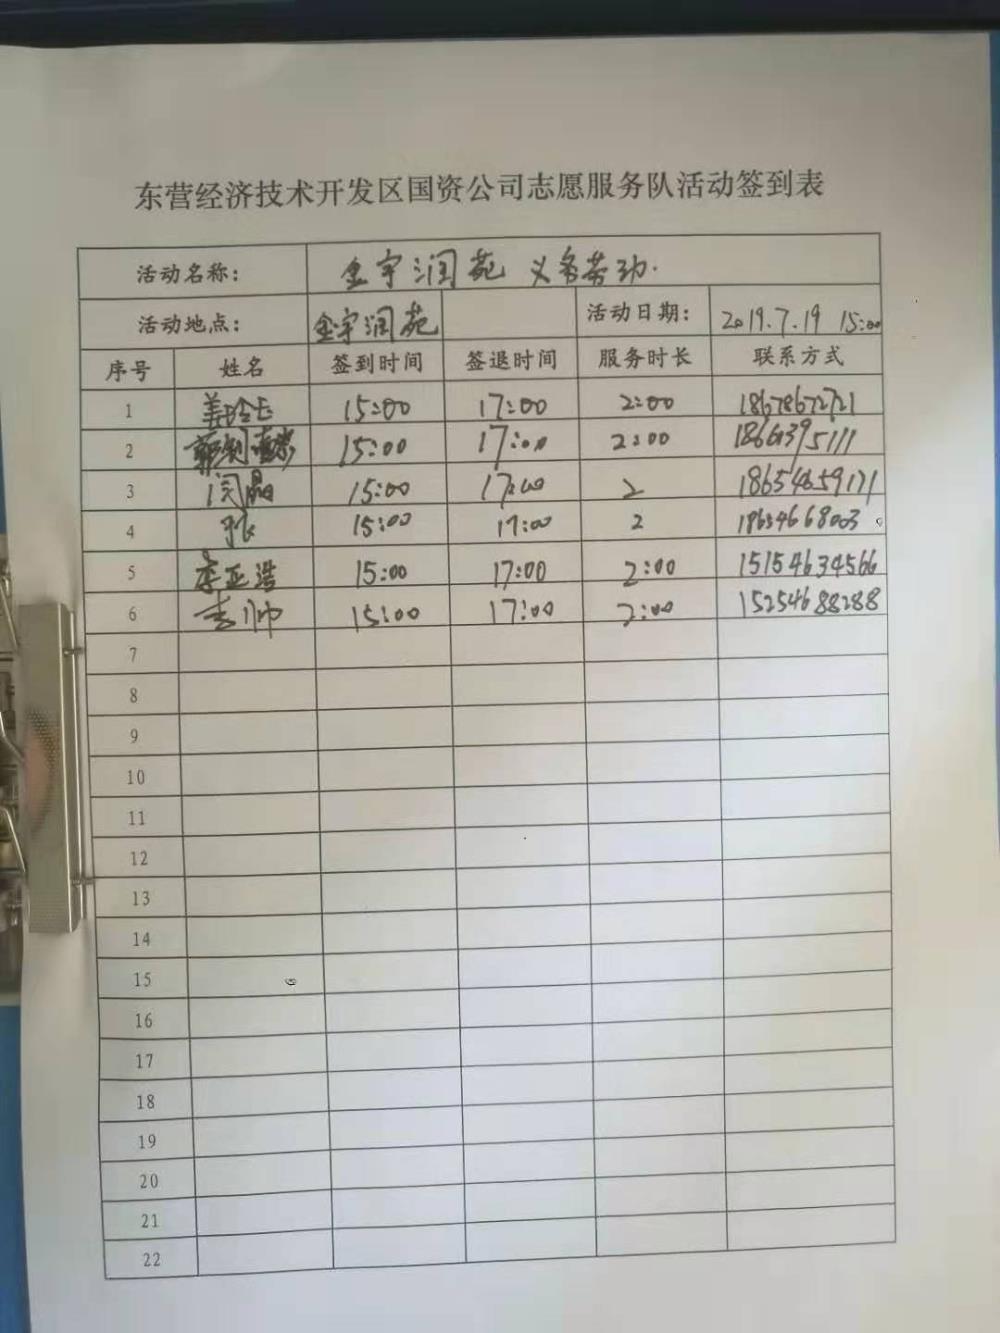 东营经济技术开发区国资公司志愿服务队活动签到表
活动名称: 金宇润苑 义务劳动.
活动地点: 金宇润苑 活动日期: 2019.7.19 15:00
序号 姓名 签到时间 签退时间 服务时长 联系方式
1 15:00 17:00 2:00 18678672721
2 15:00 17:00 2:00 18661395111
3 闫晶 15:00 17:00 2 18654659171
4 15:00 17:00 2 18654668003
5 李亚浩 15:00 17:00 2:00 15154634566
6 李帅 15:00 17:00 2:00 15254688288
7
8
9
10
11
12
13
14
15
16
17
18
19
20
21
22